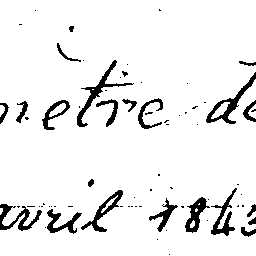 mètre de
avril 1843